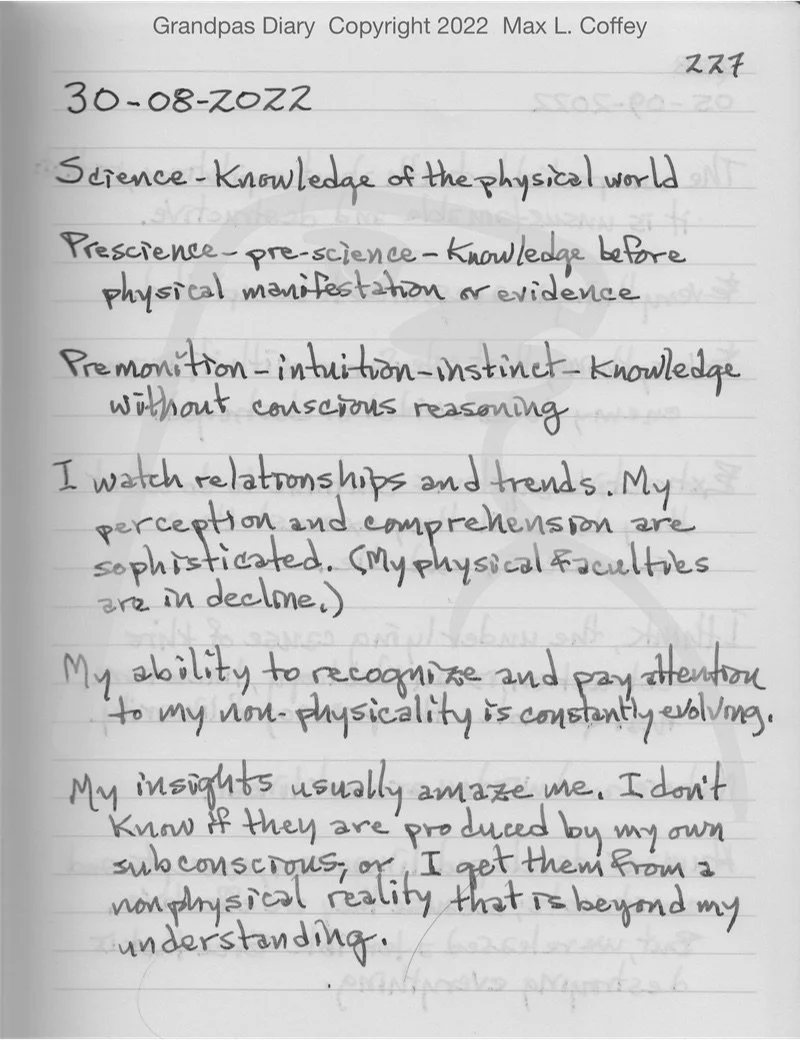 Grandpas Diary Copyright 2022 Max L. Coffey
227
30-08-2022
Science - Knowledge of the physical world
Prescience - pre-science - Knowledge before
physical manifestation or evidence
Premonition - intuition - instinct - Knowledge
without conscious reasoning
I watch relationships and trends. My
perception and comprehension are
sophisticated. (My physical faculties
are in decline.)
My ability to recognize and pay attention
to my non-physicality is constantly evolving.
My insights usually amaze me. I don't
know if they are produced by my own
subconscious, or, I get them from a
nonphysical reality that is beyond my
understanding.